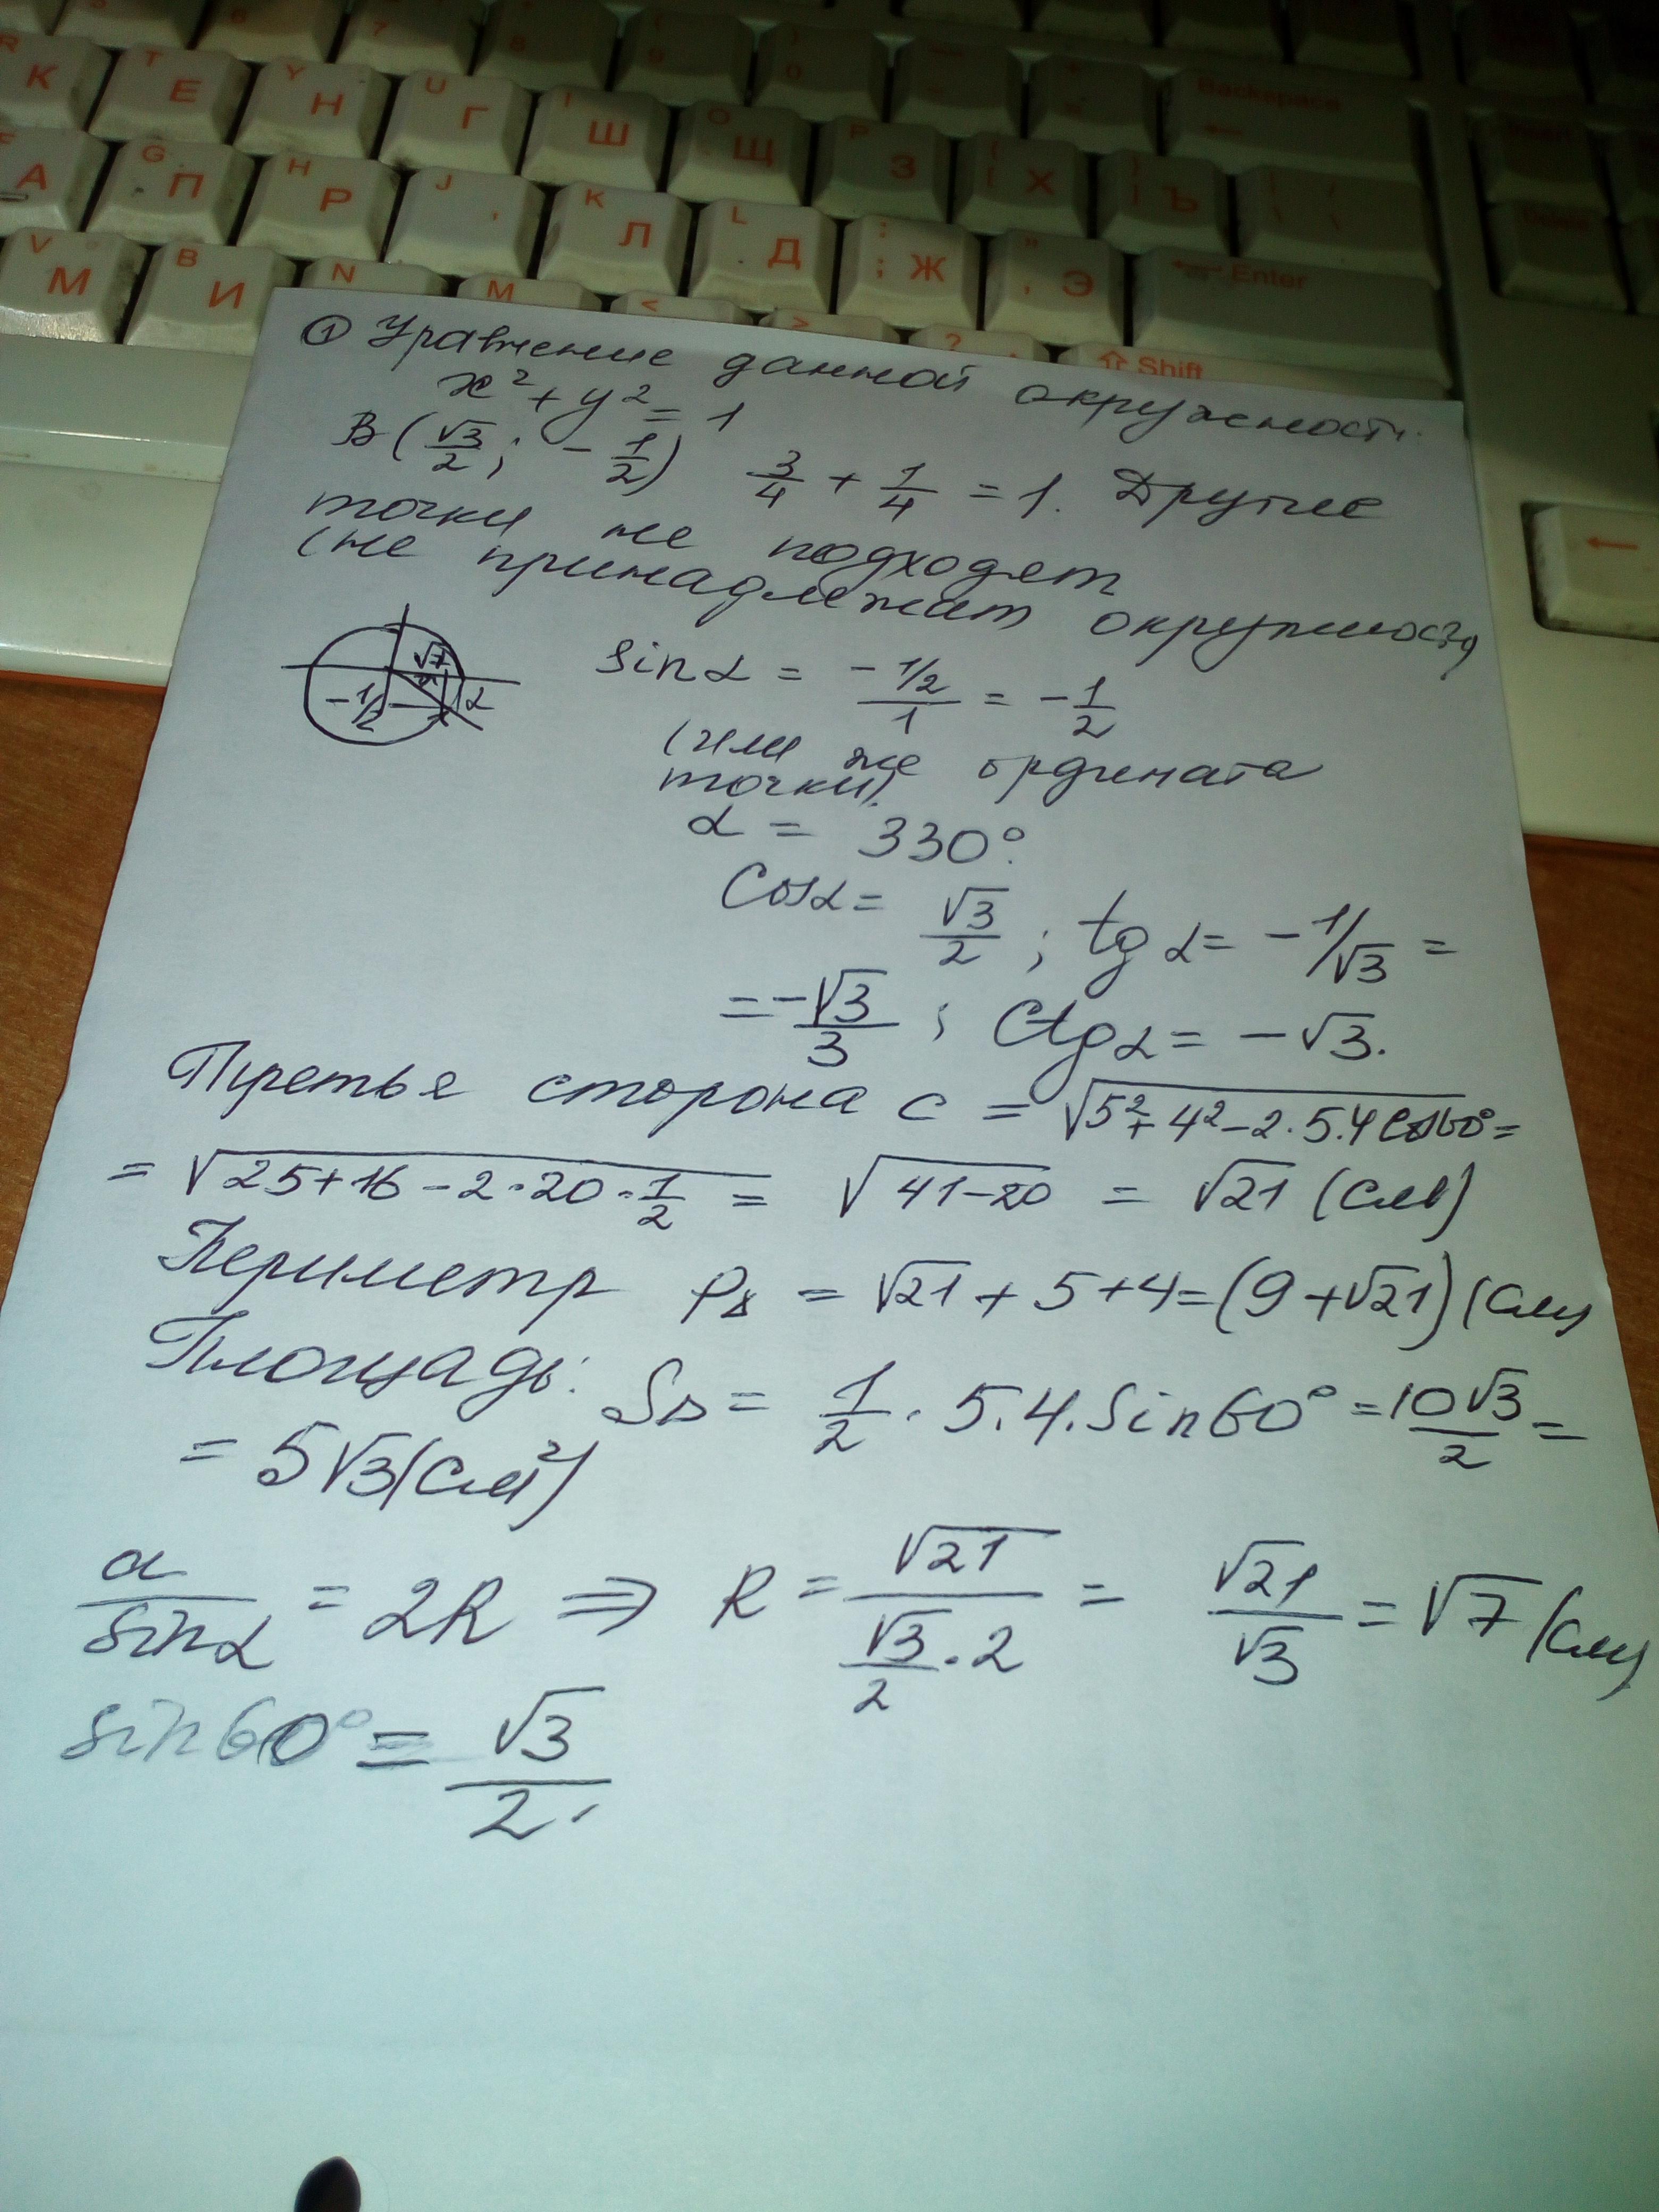 R К T Е Y Н U Г I Ш O Щ P З { [ Х } ] Ъ Backspace
F А G П H Р J K Л L Д : ; Ж " ' Э Enter
V М B И N M < > ? Shift
① Уравнение данной окружности
x² + y² = 1
B (√3/2 ; -1/2) 3/4 + 1/4 = 1. Другие
точки не подходят
(не принадлежат окружности)
sin α = (-1/2)/1 = -1/2
-1/2 α
(или же ордината
точки).
α = 330°.
Cos α = √3/2 ; tg α = -1/√3 =
= -√3/3 ; Ctg α = -√3.
Третья сторона c = √(5² + 4² - 2·5·4 cos60°) =
= √(25 + 16 - 2·20·1/2) = √(41-20) = √21 (см)
Периметр P∆ = √21 + 5 + 4 = (9 + √21) (см)
Площадь: S∆ = 1/2 · 5·4·Sin60° = 10√3/2 =
= 5√3 (см²)
a/sin α = 2R ⇒ R = √21/(√3/2 · 2) = √21/√3 = √7 (см)
sin60° = √3/2.